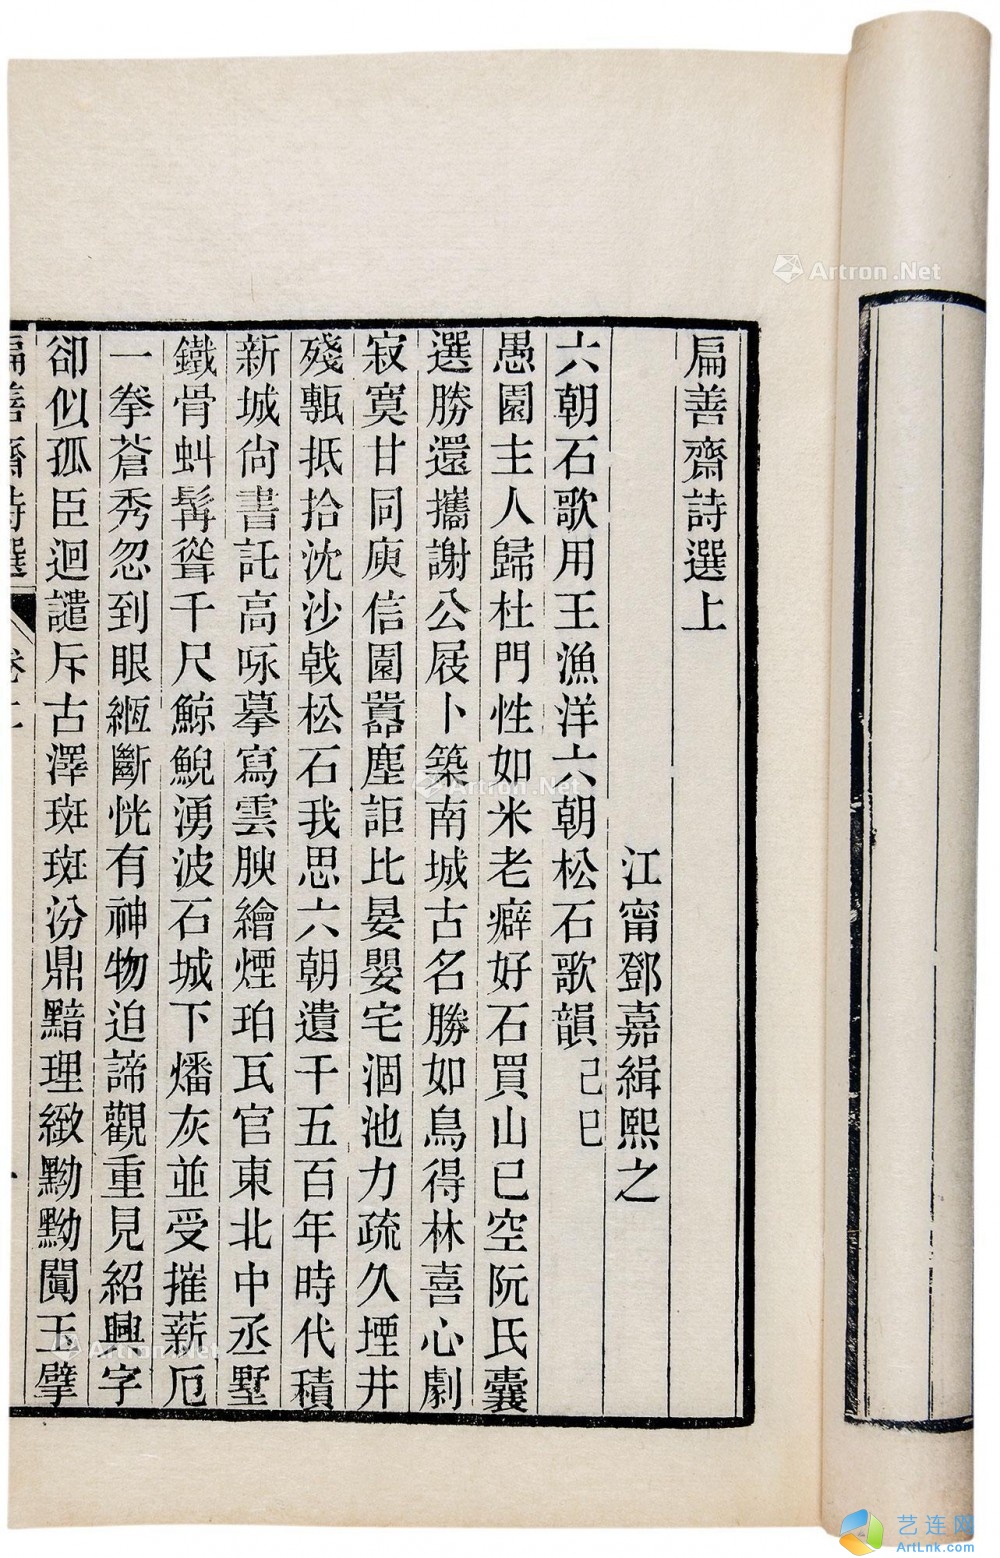 扁善齋詩選上
江甯鄧嘉緝熙之
六朝石歌用王漁洋六朝松石歌韻己巳
愚園主人歸杜門性如米老癖好石買山已空阮氏囊
選勝還攜謝公屐卜築南城古名勝如鳥得林喜心劇
寂寞甘同庾信園囂塵詎比晏嬰宅涸池力疏久堙井
殘甎抵拾沈沙戟松石我思六朝遺千五百年時代積
新城尙書託高咏摹寫雲腴繪煙珀瓦官東北中丞墅
鐵骨虯髯聳千尺鯨鯢湧波石城下燔灰並受摧薪厄
一拳蒼秀忽到眼緪斷恍有神物迫諦觀重見紹興字
卻似孤臣迴譴斥古澤斑斑汾鼎黯理緻黝黝閩王擘
扁善齋詩選
卷上
一
Artron.Net
Artron.Net
Artron.Net
艺连网
ArtLnk.com